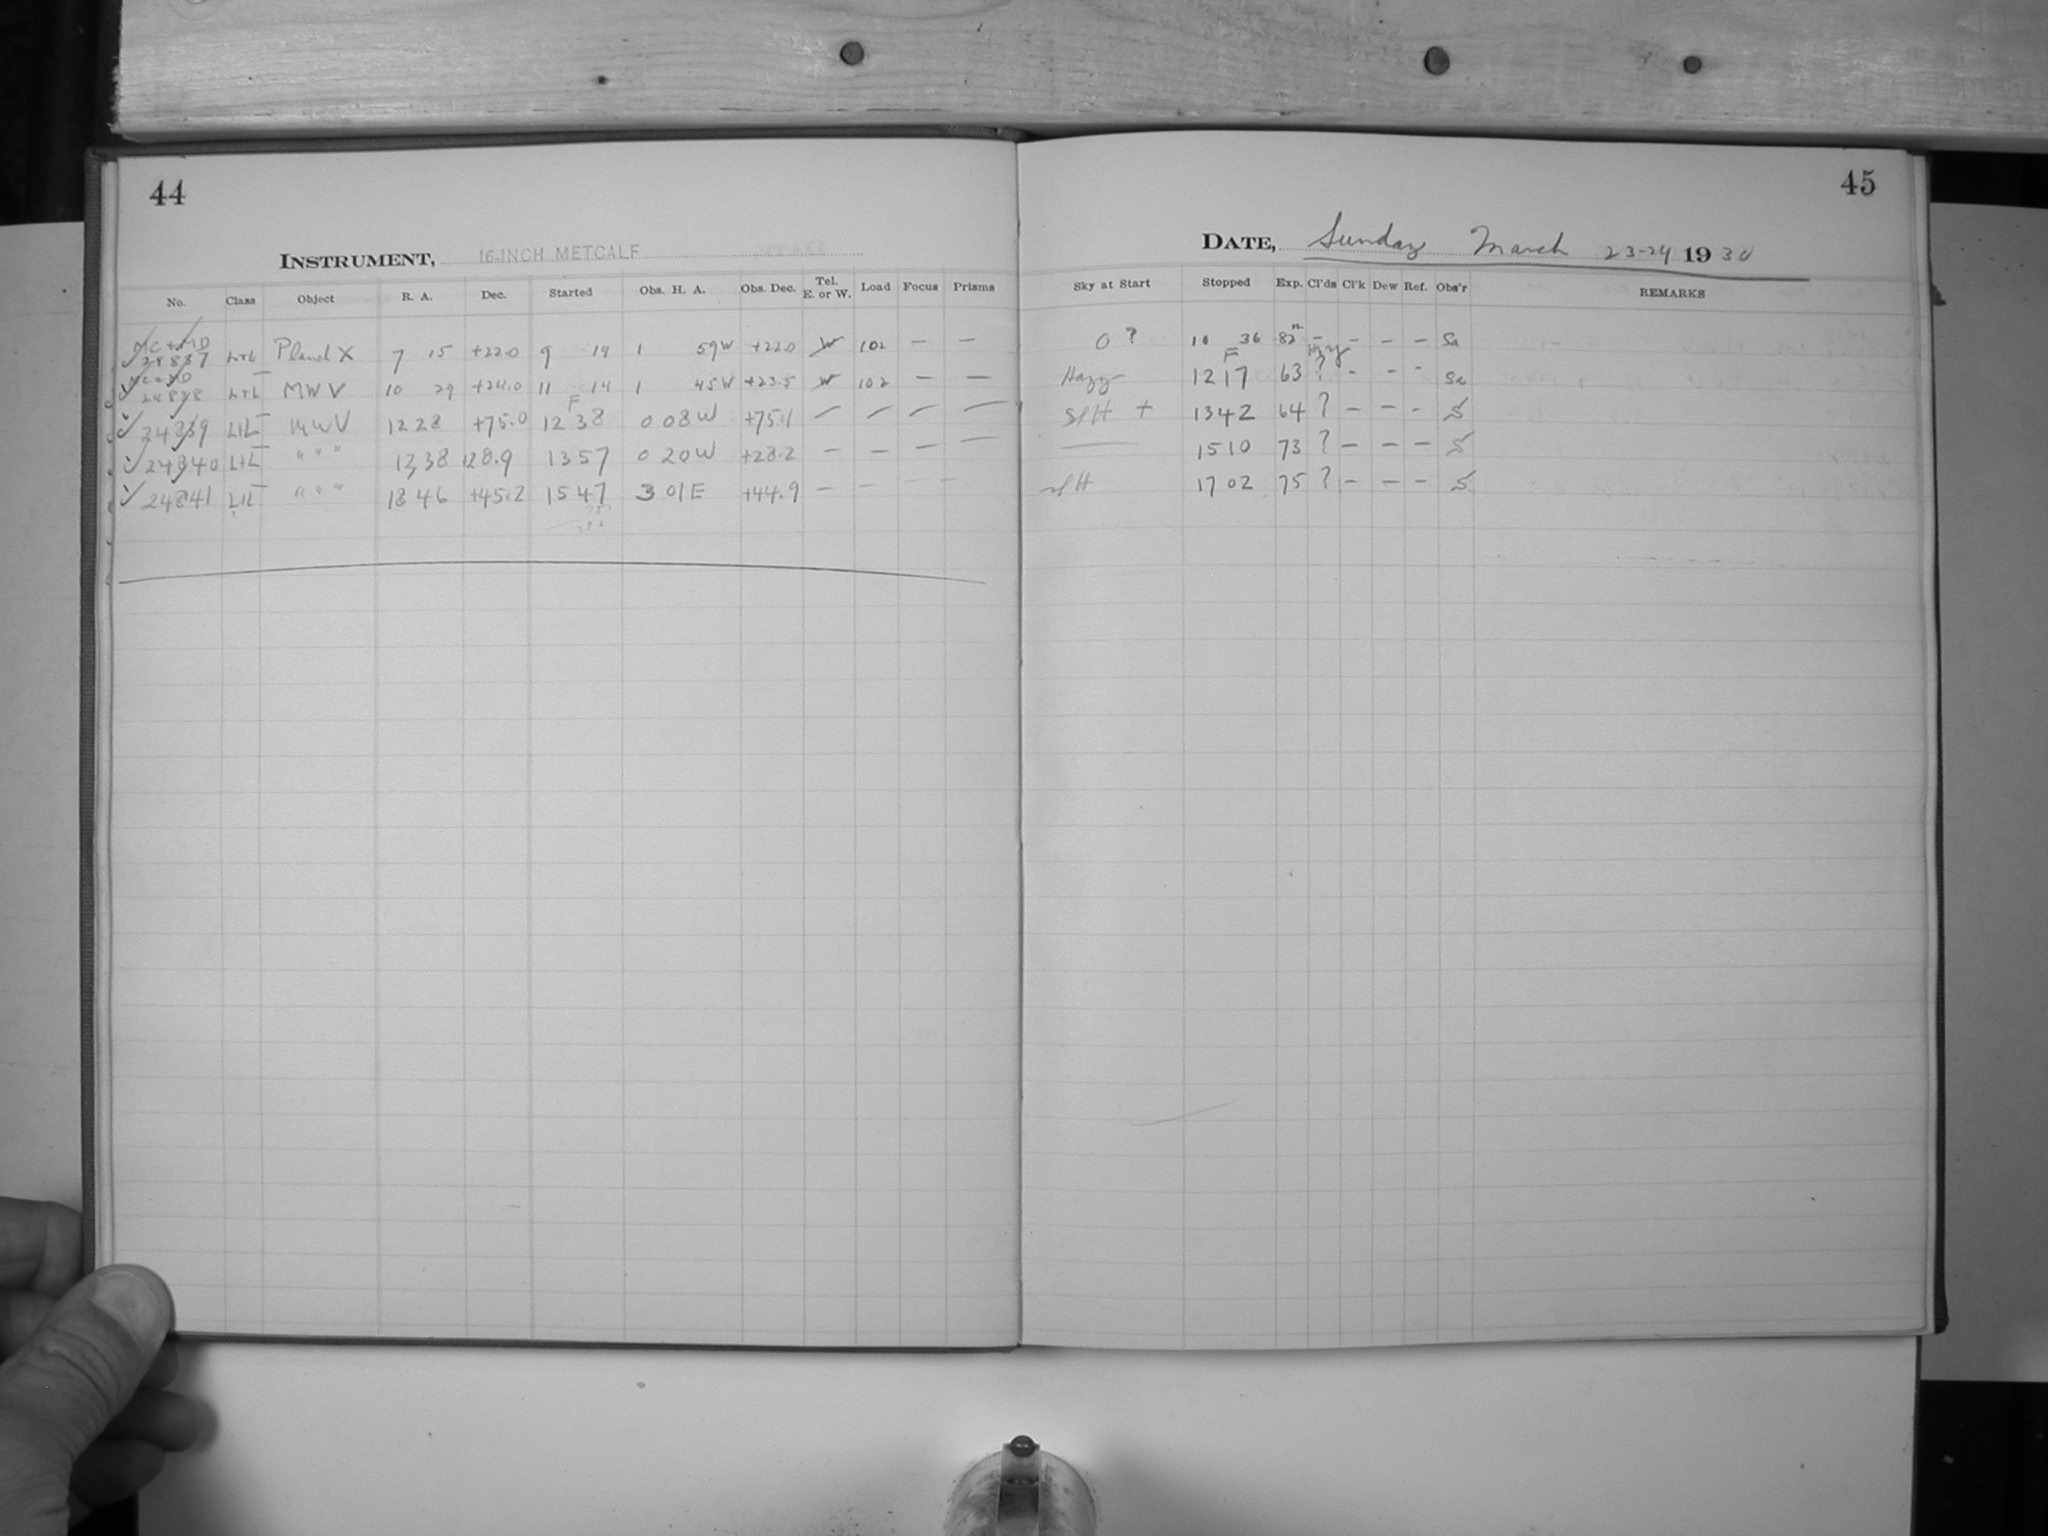 44
INSTRUMENT, 16-INCH METCALF
No. Class Object R. A. Dec. Started Obs. H. A. Obs. Dec. Tel. E. or W. Load Focus Prisms
MC + MD
24837 L+L Planet X 7 15 +22.0 9 14 1 59W +22.0 W 102 — —
MC + MD
24838 L+L MWV 10 29 +24.0 11 14 1 45W +23.5 W 102 — —
F
24839 L+L MWV 12 28 +75.0 12 38 0 08W +75.1 — — — —
24840 L+L " " " 12 38 +28.9 13 57 0 20W +28.2 — — — —
24841 L+L " " " 18 46 +45.2 15 47 3 01E +44.9 — — — —
45
DATE, Sunday March 23-24 1930
Sky at Start Stopped Exp. Cl'ds Cl'k Dew Ref. Obs'r REMARKS
0 ? 10 36 82m — — — — Sa
F Hzy
Hazy 12 17 63 ? - - - Sa
S/H + 13 42 64 ? — — - S
—— 15 10 73 ? — — — S
S/H 17 02 75 ? — — - S